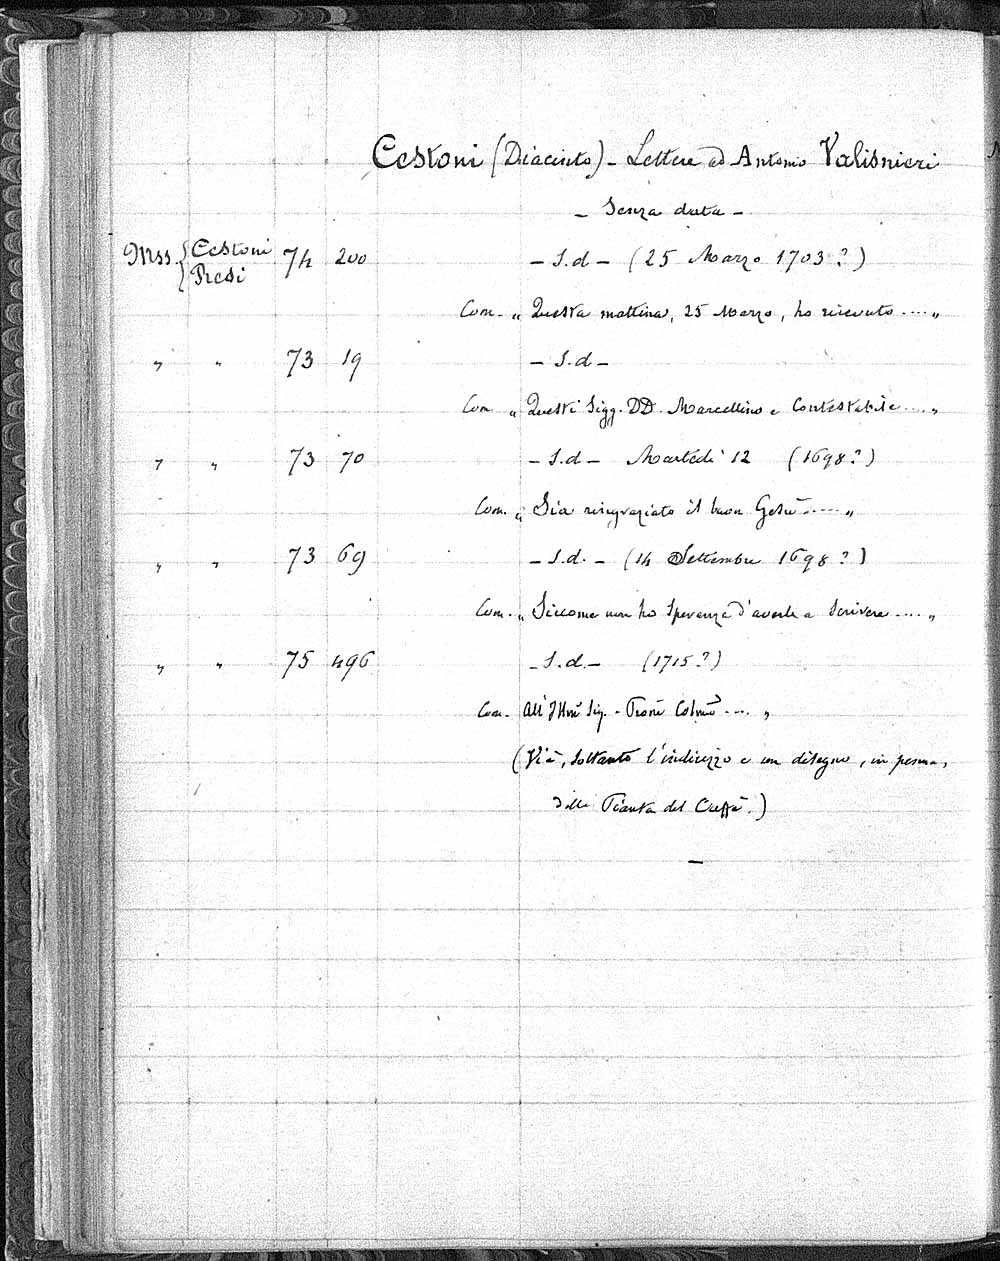 Cestoni (Diacinto) - Lettere ad Antonio Valisnieri
- Senza data -
Mss. { Cestoni Redi 74 200 - S.d - (25 Marzo 1703?)
Com. „ Questa mattina, 25 Marzo, ho ricevuto .... „
„ „ 73 19 - S.d -
Com „ Questi Sigg. DD. Marcellino e Contestabile .... „
„ „ 73 70 - S.d - Martedì 12 (1698?)
Com. „ Sia ringraziato il buon Gesù ..... „
„ „ 73 69 - S.d. - (14 Settembre 1698?)
Com. „ Siccome non ho speranza d'averle a scrivere .... „
„ „ 75 496 - S.d. - (1715?)
Com. All' Illmo Sig. .... „
(Vi è, soltanto l'indirizzo e un disegno, in penna,
della Pianta del Caffè.)